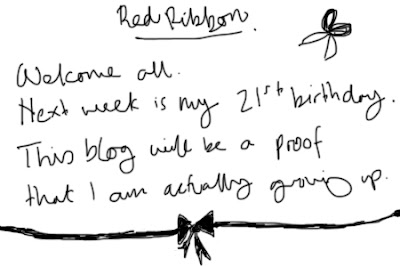 Red Ribbon.
Welcome all.
Next week is my 21st birthday.
This blog will be a proof
that I am actually growing up.